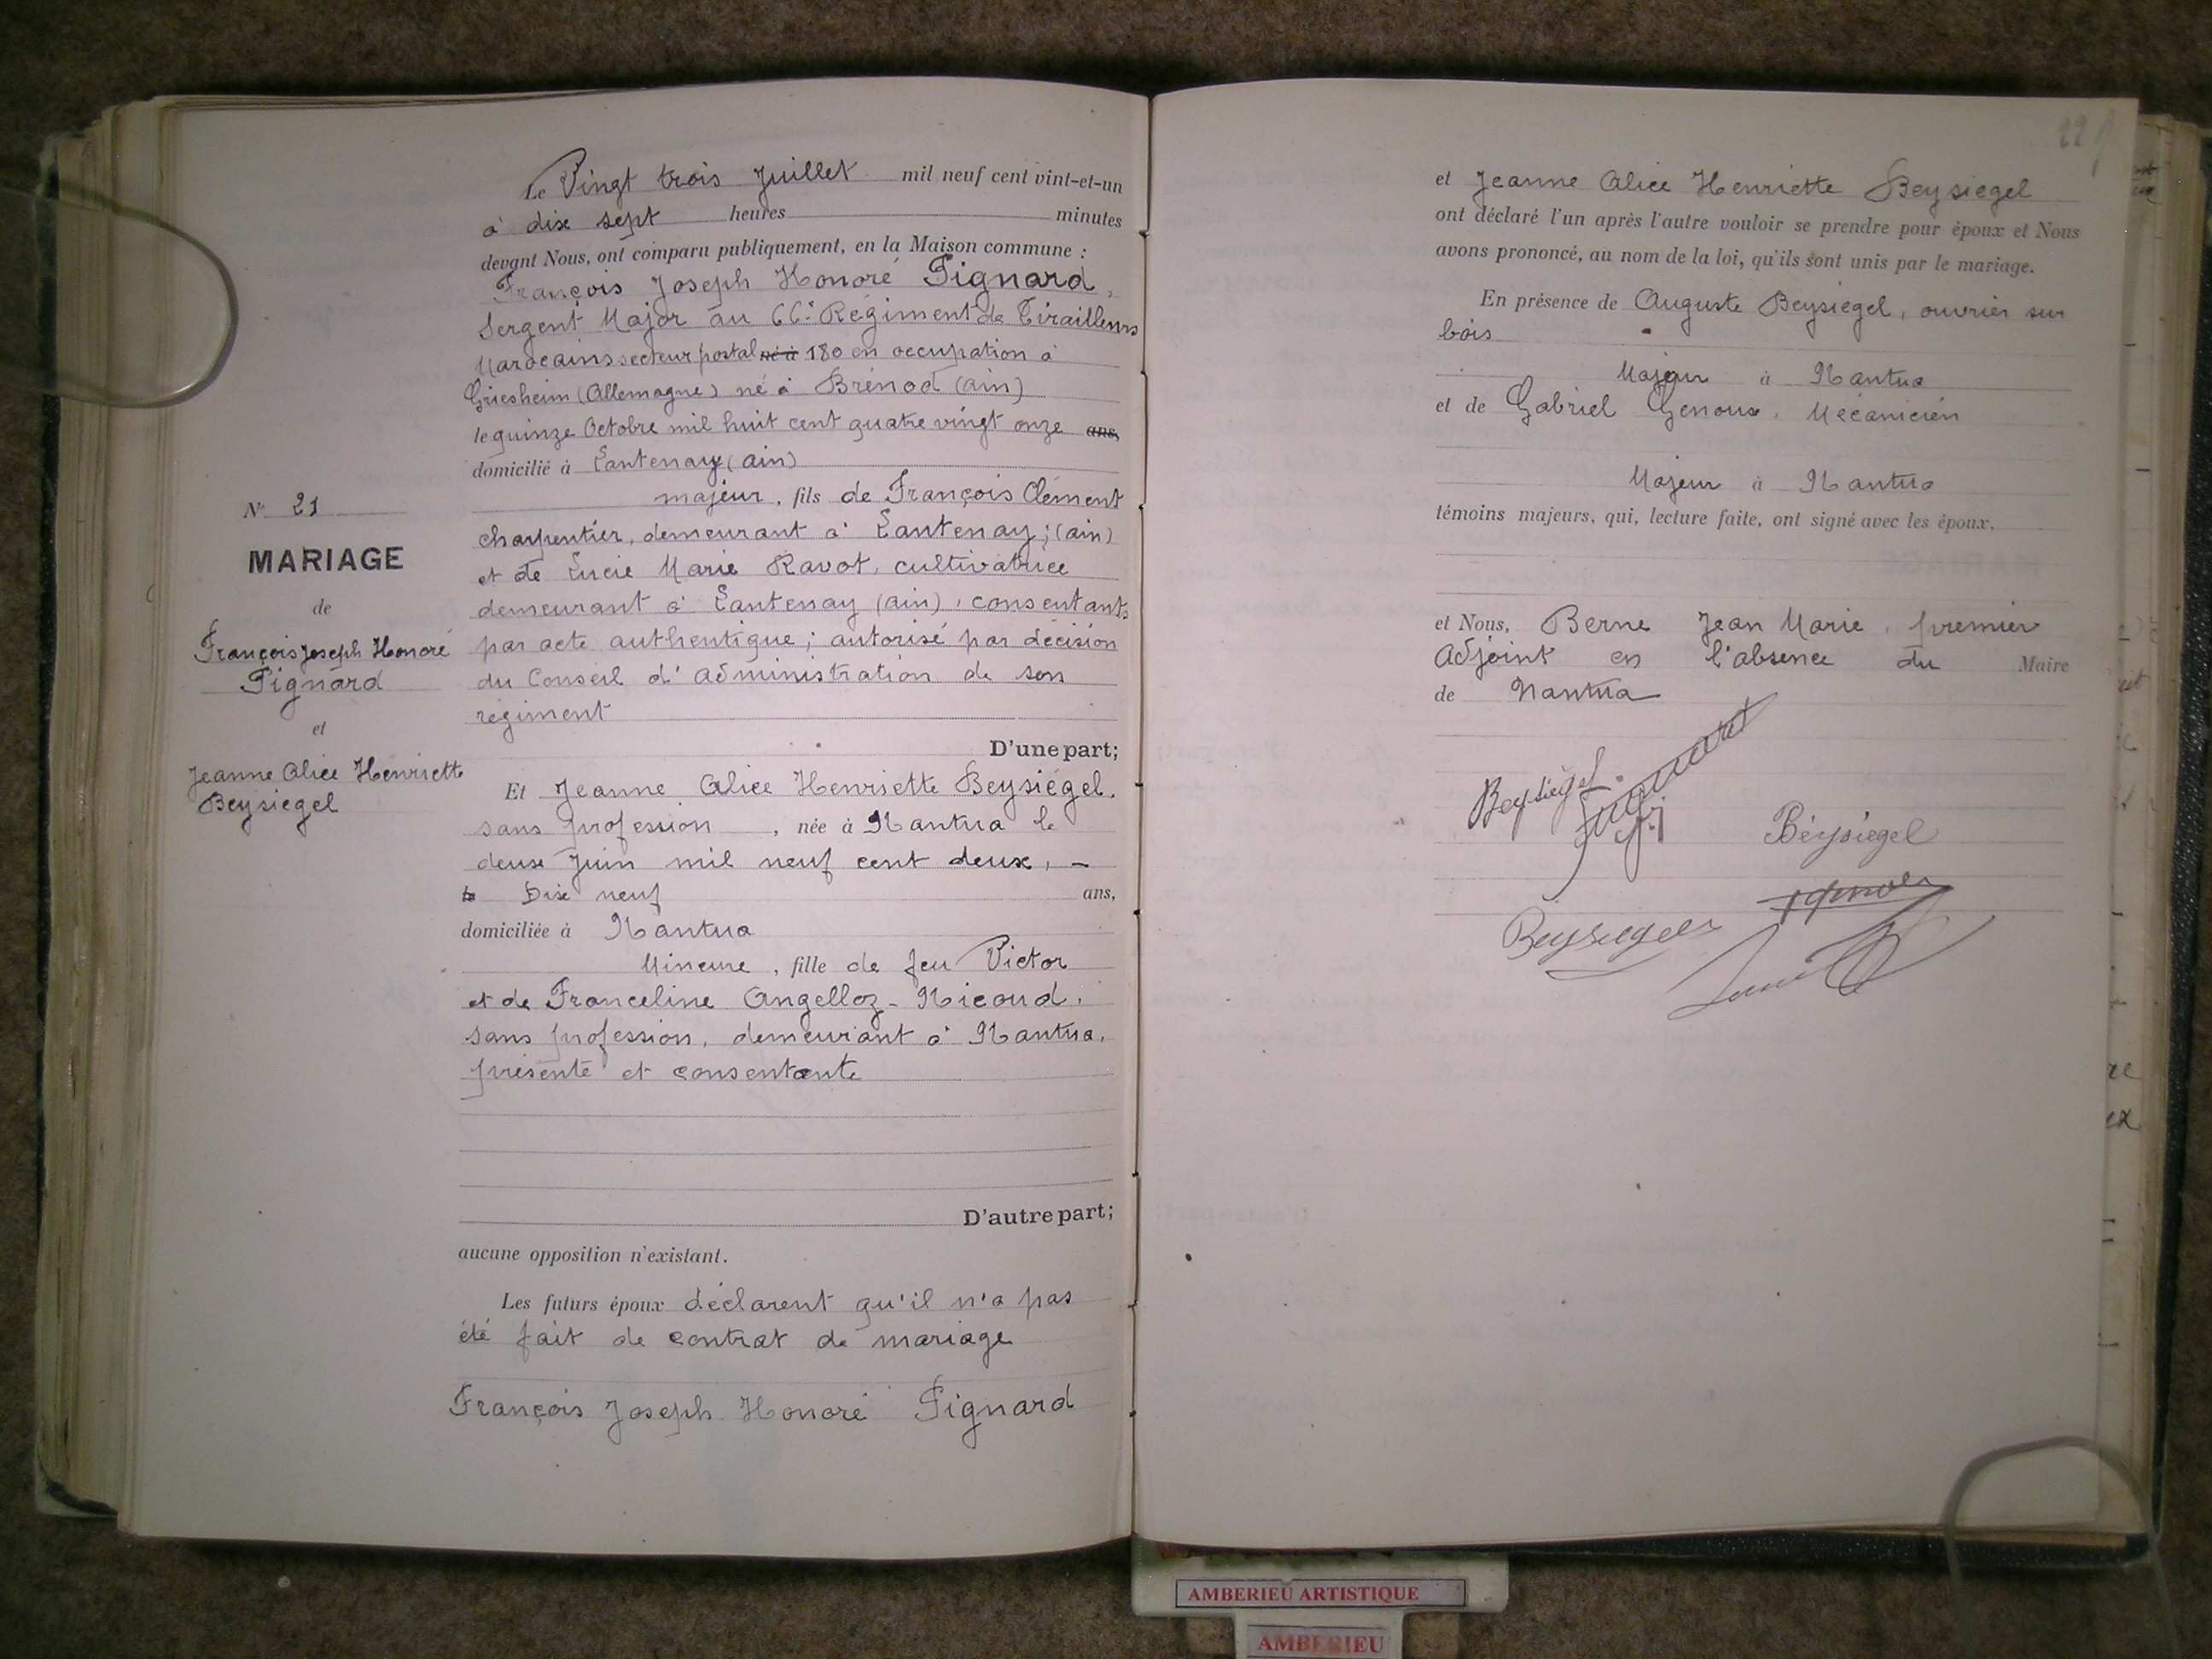 Le Vingt trois Juillet mil neuf cent vint-et-un
à dix sept heures minutes
devant Nous, ont comparu publiquement, en la Maison commune :
François Joseph Honoré Pignard,
Sergent Major au 66e Régiment de Tirailleurs
Marocains secteur postal né à 180 en occupation à
Griesheim (Allemagne) né à Brénod (ain)
le quinze Octobre mil huit cent quatre vingt onze ans,
domicilié à Lantenay (ain)
majeur, fils de François Clément
charpentier, demeurant à Lantenay ; (ain)
et de Lucie Marie Ravot, cultivatrice
demeurant à Lantenay (ain), consentants
par acte authentique ; autorisé par décision
du Conseil d'administration de son
régiment
D'une part;
N° 21
MARIAGE
de
François Joseph Honoré
Pignard
et
Jeanne Alice Henriette
Beysiegel
Et Jeanne Alice Henriette Beysiégel.
sans profession, née à Nantua le
deux Juin mil neuf cent deux, -
Dix neuf ans,
domiciliée à Nantua
Mineure, fille de feu Victor
et de Franceline Angelloz-Nicoud,
sans profession, demeurant à Nantua,
présente et consentante
D'autre part;
aucune opposition n'existant.
Les futurs époux déclarent qu'il n'a pas
été fait de contrat de mariage
François Joseph Honoré Pignard
22
et Jeanne Alice Henriette Beysiegel
ont déclaré l'un après l'autre vouloir se prendre pour époux et Nous
avons prononcé, au nom de la loi, qu'ils sont unis par le mariage.
En présence de Auguste Beysiegel, ouvrier sur
bois
Majeur à Nantua
et de Gabriel Genoux, Mécanicien
Majeur à Nantua
témoins majeurs, qui, lecture faite, ont signé avec les époux.
et Nous, Berne Jean Marie, premier
Adjoint en l'absence du Maire
de Nantua
Beysiégel
Béysiegel
AMBERIEU ARTISTIQUE
AMBERIEU